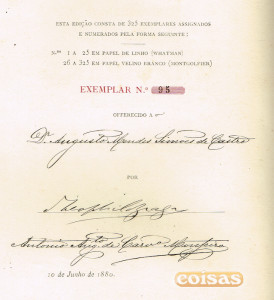 ESTA EDIÇÃO CONSTA DE 325 EXEMPLARES ASSIGNADOS
E NUMERADOS PELA FORMA SEGUINTE:
N.os 1 A 25 EM PAPEL DE LINHO (WHATMAN)
26 A 325 EM PAPEL VELINO BRANCO (MONTGOLFIER)
EXEMPLAR N.o 95
OFFERECIDO A
Dr. Augusto Mendes Simões de Castro
POR
Theophilo Braga
Antonio Augto de Carvo Monteiro
10 de Junho de 1880.
coisas